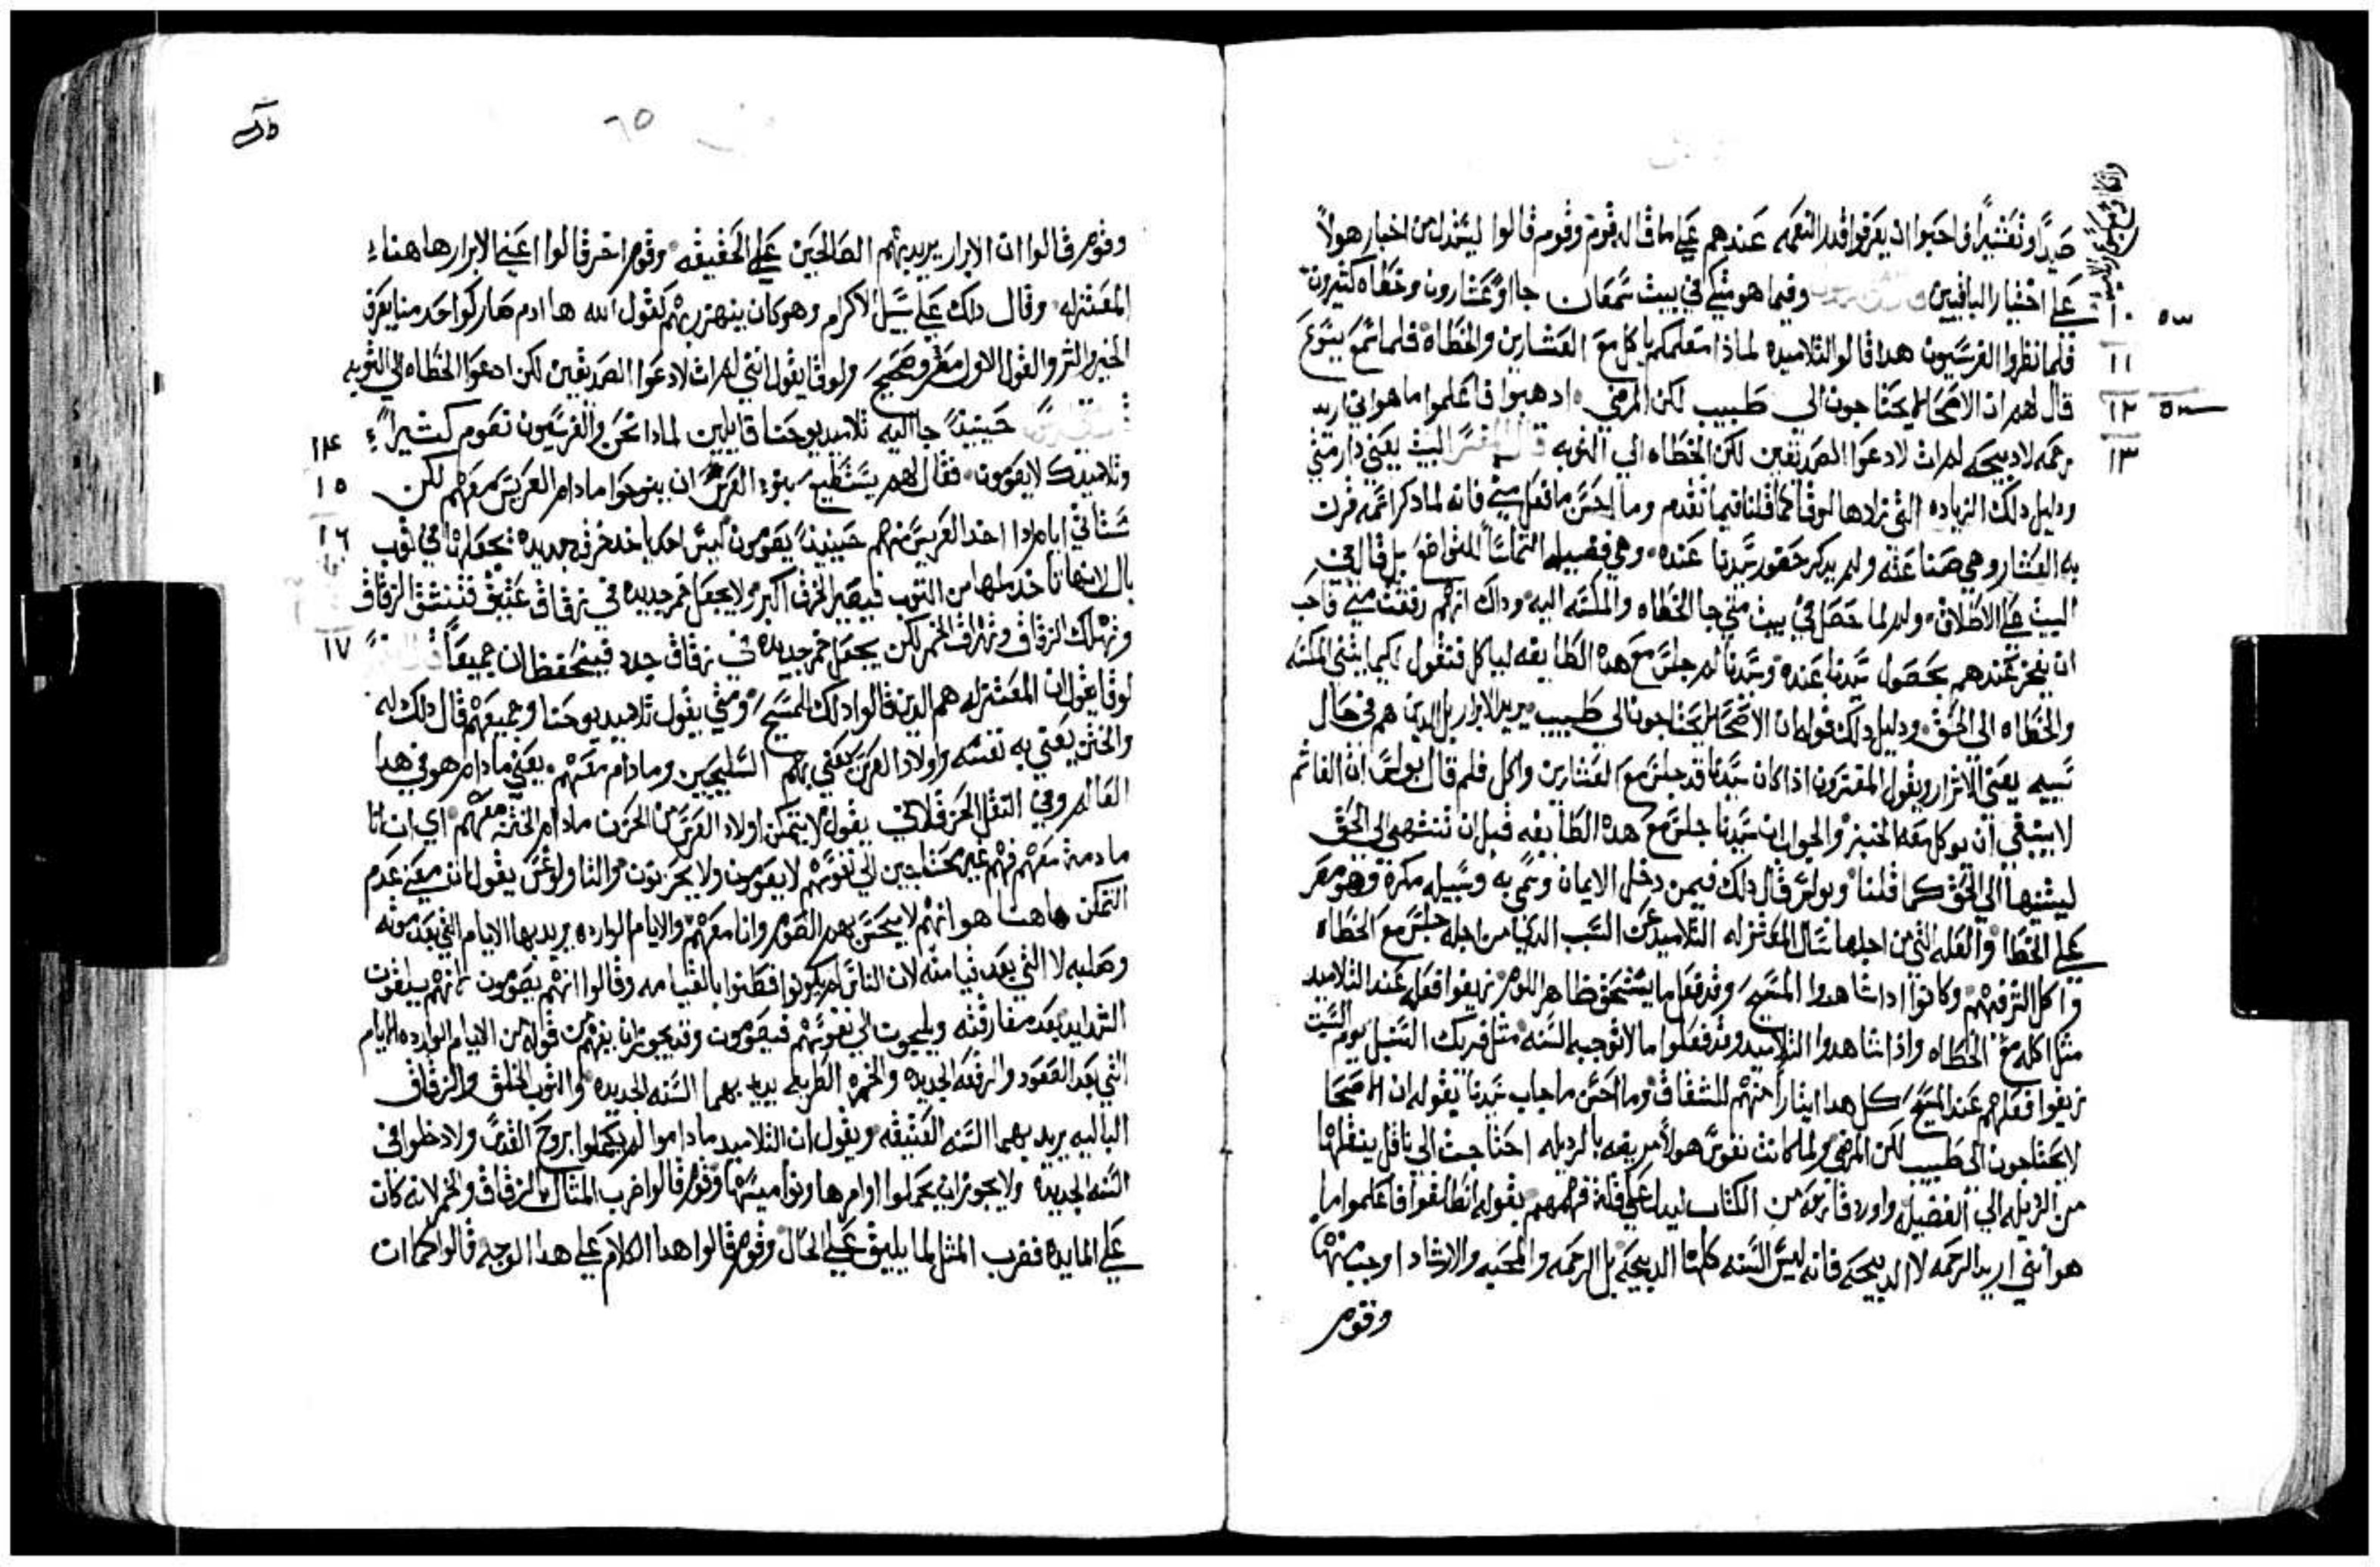 صيدًا وتفتيرًا فاحبوا ان يعرفوا قدر النعمه عندهم علي ما قاله قوم وقوم قالوا ليستدل من اخبار هولاً
علي اخبار الباقيين وفيما هو متكي في بيت سمعان جااو عشارون وخطاه كثيرون
١٠
فلما نظروا الفرسيون هدا قالوا لتلاميده لماذا معلمكم ياكل مع العشارين والخطاه فلما سمع يسوع
١١
قال لهم ان الاصحا لا يحتاجون الي طبيب لكن المرضي ادهبوا فاعلموا ما هو اني اريد
١٢
رحمه لا دبيحه لم ات لادعوا الصديقين لكن الخطاه الي التوبه قال المفسر البيت يعني دار متي
١٣
ودليل دلك الزياده التي زادها لوقا كما قلنا فيما تقدم وما احسن ما فعل متي فانه لما دكر اسمه قرن
به العشار وهي صناعته ولم يدكر حضور سيدنا عنده وهي فضيله التماسًا للتواضع بل قال في
البيت علي الاطلاق ولم لما حصل في بيت متي جا الخطاه والمكسه اليه وداك انهم رفقت متي فاحب
ان يفخر عندهم بحصول سيدنا عنده وسيدنا لم جلس مع هده الطايفه لياكل فنقول لكيما يثني المكسه
والخطاه الي الحق ودليل دلك قوله ان الاصحا لا يحتاجون الي طبيب يريد الابرار بل الدين هم في حال
سييه يعني الاشرار ويقول المفسرون اذا كان سيدنا قد جلس مع العشارين واكل فلم قال بولس ان الفاثم
لا ينبغي ان يوكل معه الخبز والجواب ان سيدنا جلس مع هده الطايفه قبل ان تنتهي الي الحق
ليثنيها الي الحق كما قلنا وبولس قال دلك فيمن دخل الايمان وسمي به وسبيله مكره وهو مصر
علي الخطا والعله التي من اجلها سال المعتزله التلاميد عن السبب الدي من اجله جلس مع الخطاه
واكل الترفيههم وكانوا ادا شاهدوا المسيح وقد فعل ما يستحق ظاهر اللوم زيفوا فعله عند التلاميد
مثل اكله مع الخطاه واذا شاهدوا التلاميد وقد فعلوا ما لا توجبه السنه مثل فريك السنبل يوم السبت
زيفوا فعلهم عند المسيح كل هدا ايثارًا منهم للشقاق وما احسن ما جاب سيدنا بقوله ان الاصحا
لا يحتاجون الي طبيب لكن المرضي ولما كانت نفوس هولا مريضه بالرديله احتاجت الي ناقل ينقلها
من الرديله الي الفضيله واورد قا برهه من الكتاب ليدل علي قلة فهمهم بقوله انطلقوا فاعلموا ما
هو انني اريد الرحمه لا الدبيحه فانه ليس السنه كلها الدبيحه بل الرحمه والمحبه والارشاد اوجب منها
وقوم
٦٥
وقوم قالوا ان الابرار يريد بهم الصالحين علي الحقيقه وقوم اخر قالوا اعني الابرار هاهنا
المعتزله وقال دلك علي سبيل الاكرام وهو كان ينهزر بهم كقول الله ها ادم صار كواحد منا يعرف
الخير والشر والقول الاول مقرر وصحيح ولوقا يقول انني لم ات لادعوا الصديقين لكن ادعوا الخطاه الي التوبه
حينيدٍ جا اليه تلاميد يوحنا قايلين لمادا نحن والفرسيون نصوم كثيرًا
١٤
وتلاميدك لا يصومون فقال لهم يستطيع بنو العرس ان ينوحوا ما دام العريس معهم لكن
١٥
ستاتي ايام ادا اخد العريس منهم حينيدٍ يصومون ليس احد ياخد خرقه جديده فيجعلها في توب
١٦
بال لانها تاخد ملها من التوب فيصير الخرق اكبر ولا يجعل خمر جديده في زقاق عتيق فتنشق الزقاق
وتهلك الزقاق وتهراق الخمر لكن يجعل خمر جديده في زقاق جدد فيتحفظان جميعًا قال المفسر
١٧
لوقا يقول ان المعتزله هم الدين قالوا دلك للمسيح ومتي يقول تلاميد يوحنا وجميعهم قال دلك له
والختن يعني به نفسه واولاد العرس يعني بهم السليحيين وما دام معهم يعني ما دام هو في هدا
العالم وفي النقل الحرقلاني يقول لا يتمكن اولاد العرس من الحزن ما دام الختن معهم اي ان انا
ما دمت معهم فهم غير محتاجين الي تقوسهم لا يصومون ولا يحزنون والتاولوغس يقول ان معني عدم
التمكن هاهنا هو انهم لا يحسن بهم الصوم وانا معهم والايام الوارده يريد بها الايام التي بعد موته
وصلبه لا التي بعد قيامته لان الناس لم يكونوا فطنوا بالقيامه وقالوا انهم يصومون لانهم سيلقون
الشدايد بعد مفارقته ويلجيون الي نفوسهم فيصومون وقد يجوز ان يفهم من قوله من الايام الوارده الايام
التي بعد الصعود والرقعه الجديده والخمره الطريه يريد بهما السنه الجديده والتوب الخلق والزقاق
الباليه يريد بهما السنه العتيقه ويقول ان التلاميد ما داموا لم يكملوا بروح القدس ولا دخلوا في
السنه الجديده ولا يجوز ان يحملوا اوامرها ونواميسها وقوم قالوا ضرب المثال بالزقاق والخمر لانه كان
علي المايده فضرب المثل لما يليق علي الحال وقوم قالوا هدا الكلام علي هدا الوجه قالوا كما ان